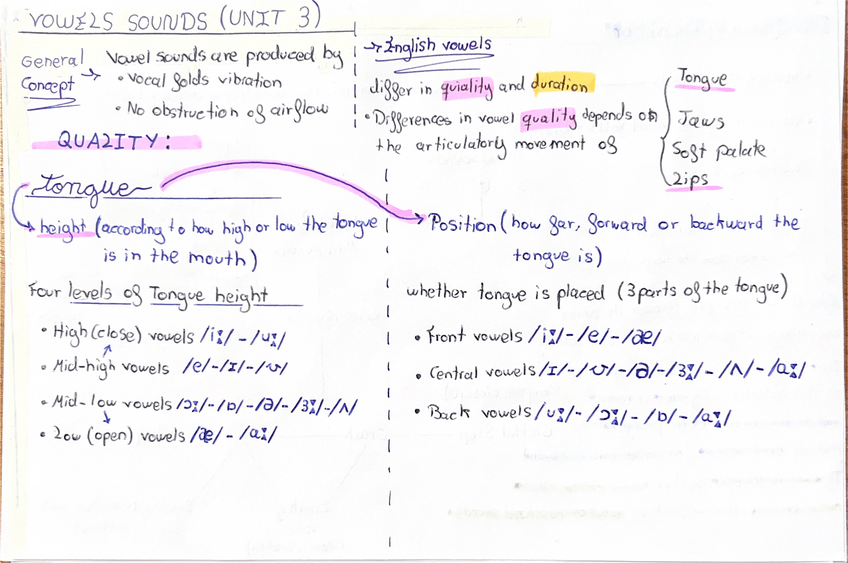 VOWELS SOUNDS (UNIT 3)
General Concept → Vowel sounds are produced by
• Vocal folds vibration
• No obstruction of airflow
→ English vowels
differ in quiality and duration
• Differences in vowel quality depends on
the articulatory movement of
Tongue
Jaws
Soft palate
Lips
QUALITY:
tongue
height (according to how high or low the tongue
is in the mouth)
Four levels of Tongue height
• High (close) vowels /iː/ - /uː/
• Mid-high vowels /e/-/ɪ/-/ʊ/
• Mid-low vowels /ɔː/-/ɒ/-/ə/-/ɜː/-/ʌ/
• Low (open) vowels /æ/ - /ɑː/
Position (how far, forward or backward the
tongue is)
whether tongue is placed (3 parts of the tongue)
• Front vowels /iː/-/e/-/æ/
• Central vowels /ɪ/-/ʊ/-/ə/-/ɜː/-/ʌ/-/ɑː/
• Back vowels /uː/-/ɔː/-/ɒ/-/ɑː/